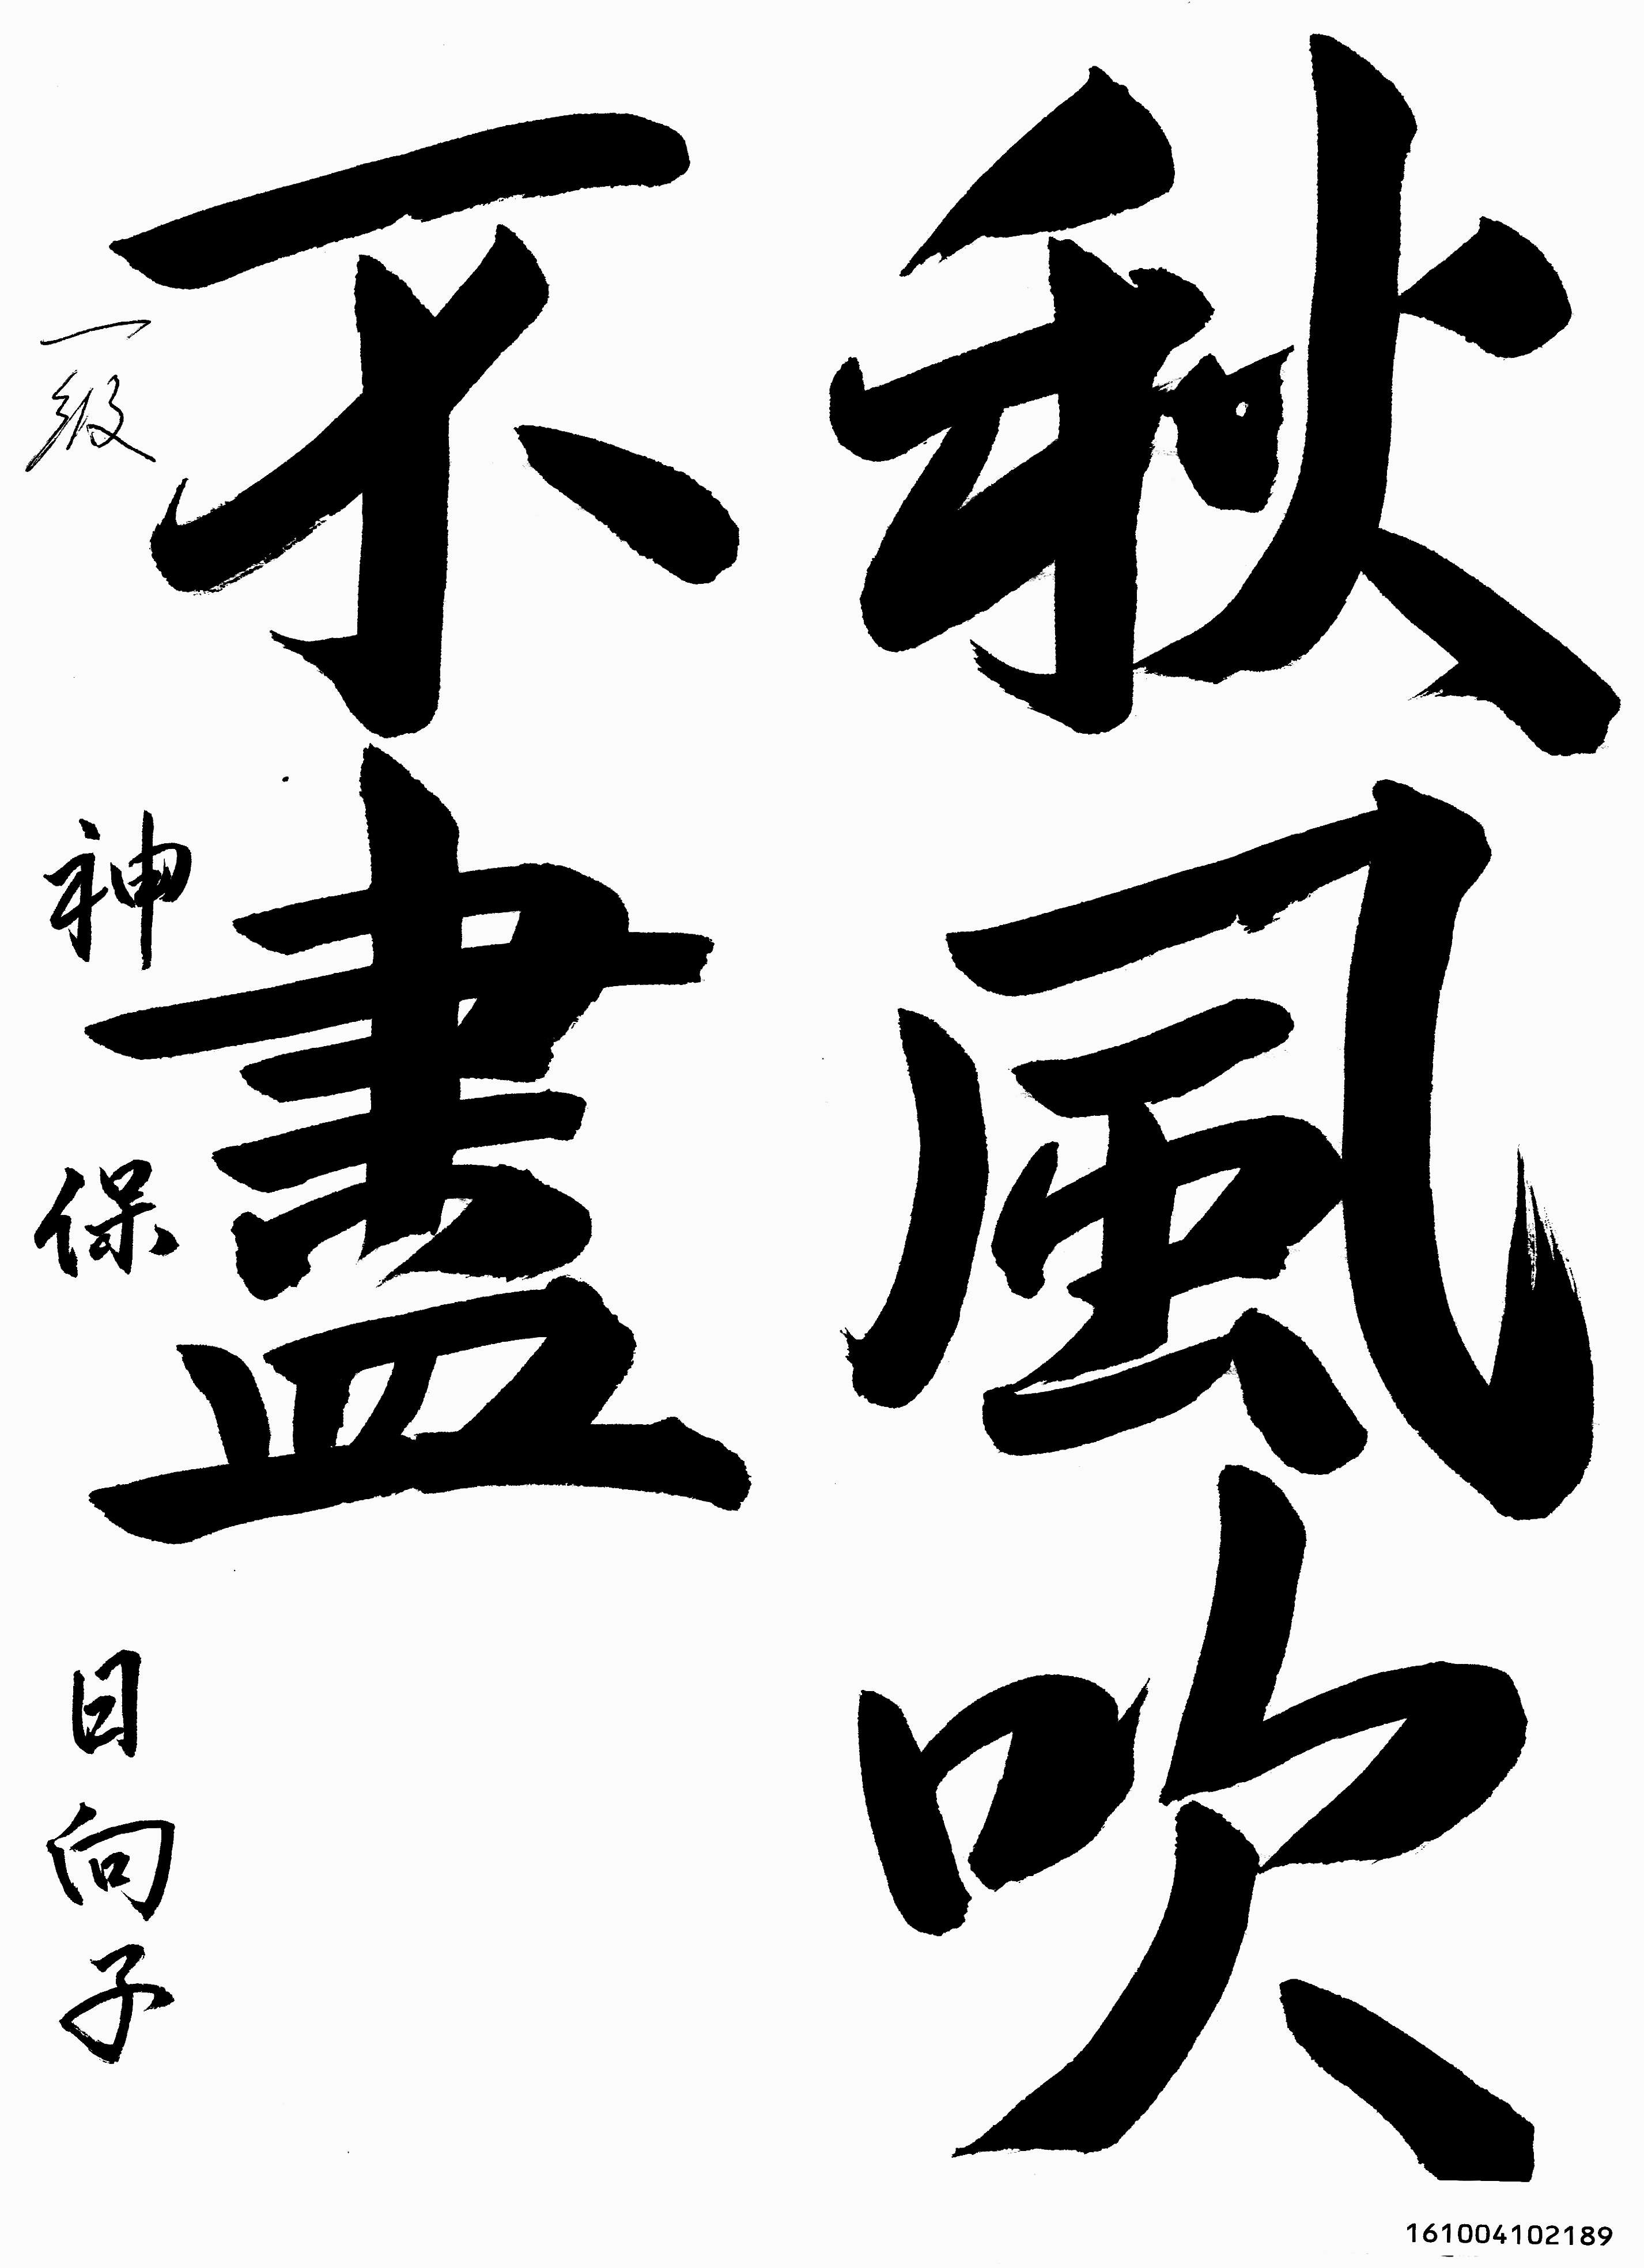 秋風吹
不盡
一級 神保日向子
161004102189